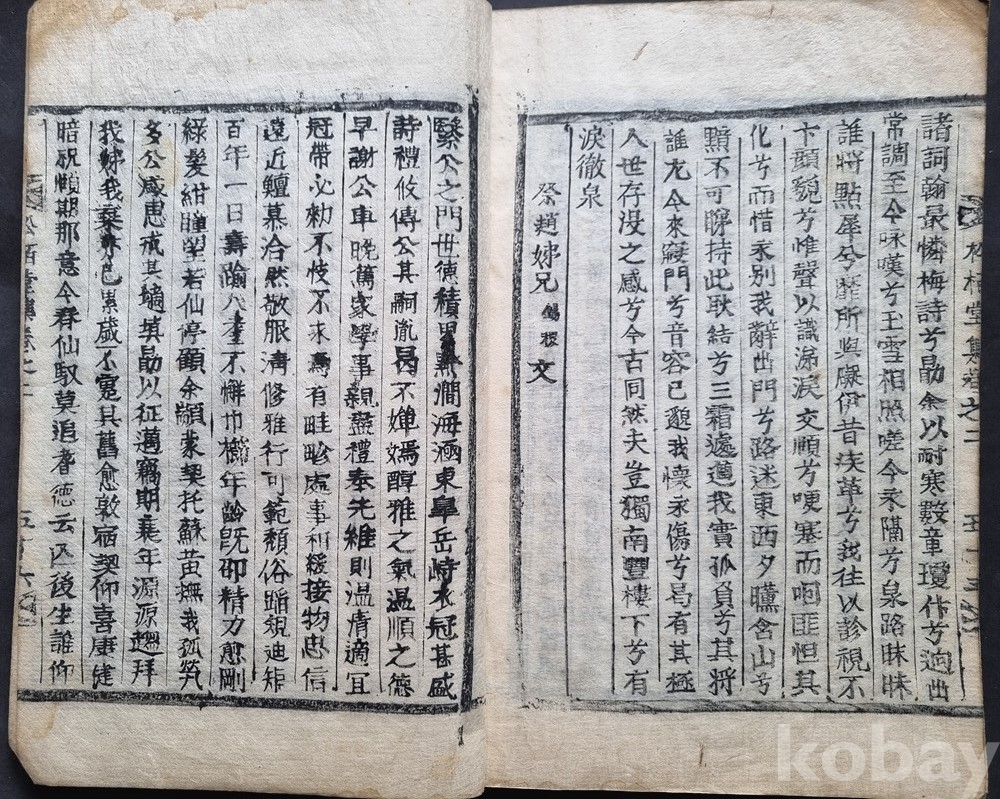 諸詞翰最憐梅詩兮勖余以耐寒數章瓊什兮逈出
常調至今咏嘆兮玉雪相照嗟今永隔兮泉路昧昧
誰將點犀兮靡所與凝伊昔疾革兮我往以診視不
卞顔貌兮惟聲以識涕淚交順兮哽塞而咽匪怛其
化兮而惜永別我辭出門兮路迷東西夕曛含山兮
黯不可睇持此耿結兮三霜遽邁我實孤負兮其將
誰尤今來寢門兮音容已邈我懷永傷兮曷有其極
人世存沒之感兮今古同然夫豈獨南豐樓下兮有
淚徹泉
祭趙姊兄 文
繄公之門世德積累 澗海涵東皐岳峙衣冠甚盛
詩禮攸傳公其嗣胤曷不嬋嫣醇雅之氣温順之德
早謝公車晚篤家學事親盡禮奉先維則温凊適宜
冠帶必勑不忮不求 有畦畛處事和緩接物忠信
遠近鱣慕洽然敬服淸修雅行可範頹俗蹈䂓迪矩
百年一日壽踰八 不懈巾櫛年齡旣卲精力愈剛
綠髮紺瞳望若仙停顧余顓蒙契托蘇黃撫我孤煢
多公感惠戒其墻埴勖以征邁竊期衰年源源趨拜
我娣我 奄 歲不寬其舊愈敦宿契仰喜康健
暗祝 期那意今 仙馭莫追耆德云 後生誰仰
松栢堂集卷之二
kobay